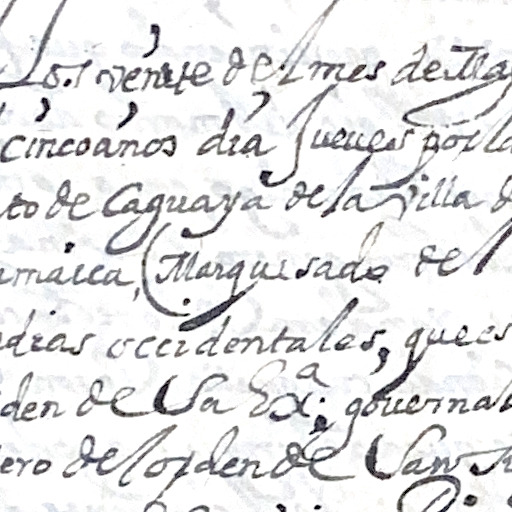 Los veinte del mes de Ma
cincoanos dia Jueues por la
to de Caguaya de la Villa d
amaica, (Marquesado de l
ndias occidentales, que es
den de Su Exa. gouernal
ero del orden de San